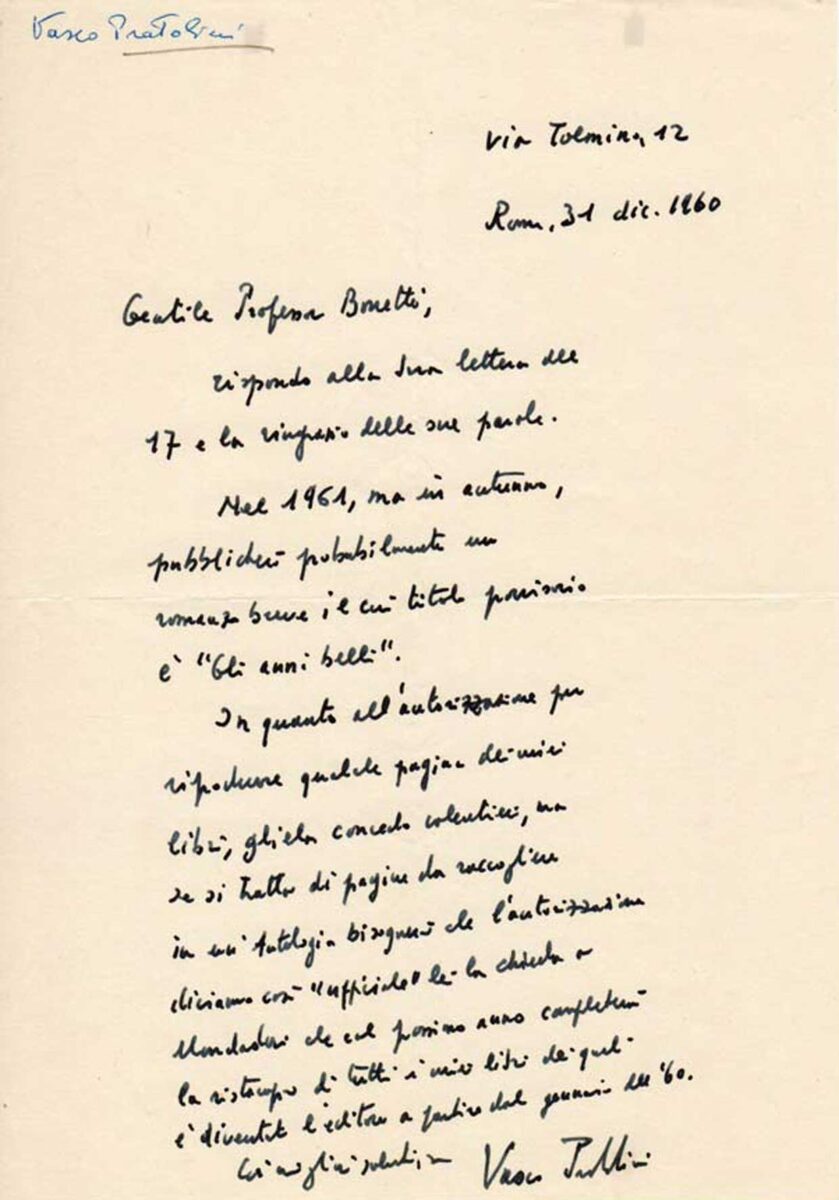 Vasco Pratolini
Via Tolmino, 12
Roma, 31 dic. 1960
Gentile Professor Bonetti,
rispondo alla Sua lettera del
17 e la ringrazio delle sue parole.
Nel 1961, ma in autunno,
pubblicherò probabilmente un
romanzo breve il cui titolo provvisorio
è "Gli anni belli".
In quanto all'autorizzazione per
riprodurre qualche pagina dei miei
libri, gliela concedo volentieri, ma
se si tratta di pagine da raccogliere
in un'Antologia bisognerà che l'autorizzazione
diciamo così "ufficiale" lei la chieda a
Mondadori che col prossimo anno completerà
la ristampa di tutti i miei libri dei quali
è diventato l'editore a partire dal gennaio del '60.
Coi migliori saluti, suo Vasco Pratolini